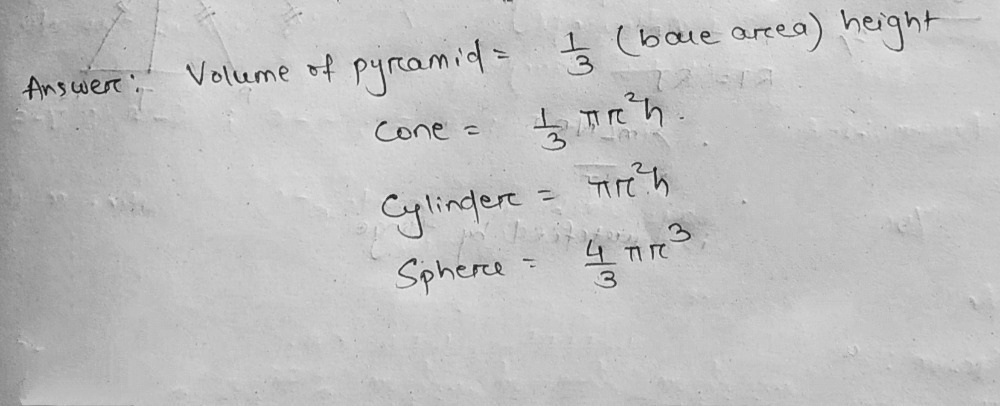 Answer: Volume of pyramid = 1/3 (base area) height
Cone = 1/3 πr²h.
Cylinder = πr²h
Sphere = 4/3 πr³